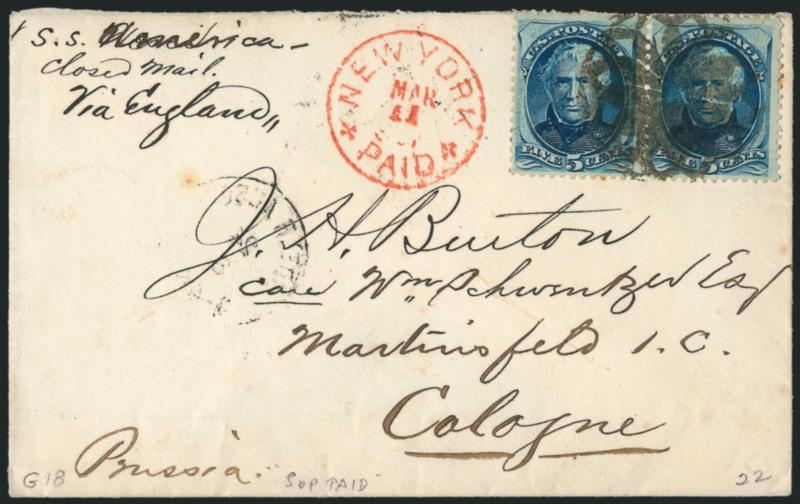 S. S. America -
Closed Mail.
Via England
NEW YORK
MAR
11
PAID
U.S. POSTAGE
FIVE 5 CENTS
U.S. POSTAGE
FIVE 5 CENTS
J. H. Burton
care Wm Schwentzer Esq
Martinsfeld 1. C.
Cologne
Prussia.
G18
SUP PAID
22